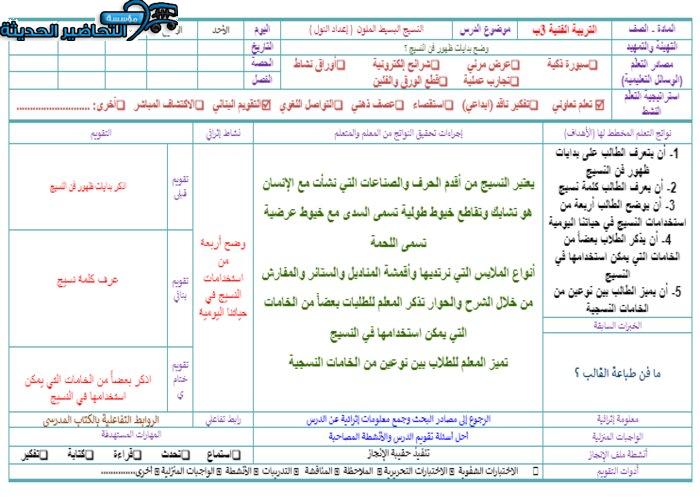 مؤسسة
التحاضير الحديثة
المادة - الصف
التربية الفنية 3ب
موضوع الدرس
النسيج البسيط الملون ( إعداد النول )
اليوم
الأحد
التهيئة والتمهيد
وضح بدايات ظهور فن النسيج ؟
التاريخ
مصادر التعلم
(الوسائل التعليمية)
سبورة ذكية
عرض مرئي
شرائح إلكترونية
أوراق نشاط
الحصة
تجارب عملية
قطع الورق والفلين
الفصل
استراتيجية التعلم
النشط
تعلم تعاوني
تفكير ناقد (ابداعي)
استقصاء
عصف ذهني
التواصل اللغوي
التقويم البنائي
الاكتشاف المباشر
أخرى: ............................
نواتج التعلم المخطط لها (الأهداف)
إجراءات تحقيق النواتج من المعلم والمتعلم
نشاط إثرائي
التقويم
1- أن يتعرف الطالب على بدايات
ظهور فن النسيج
2- أن يعرف الطالب كلمة نسيج
3- أن يوضح الطالب أربعة من
استخدامات النسيج في حياتنا اليومية
4- أن يذكر الطلاب بعضاً من
الخامات التي يمكن استخدامها في
النسيج
5- أن يميز الطالب بين نوعين من
الخامات النسجية
الخبرات السابقة
ما فن طباعة القالب ؟
يعتبر النسيج من أقدم الحرف والصناعات التي نشأت مع الإنسان
هو تشابك وتقاطع خيوط طولية تسمى السدى مع خيوط عرضية
تسمى اللحمة
أنواع الملابس التي نرتديها وأقمشة المناديل والستائر والمفارش
من خلال الشرح والحوار تذكر المعلم للطلبات بعضاً من الخامات
التي يمكن استخدامها في النسيج
تميز المعلم للطلاب بين نوعين من الخامات النسجية
وضح أربعة
من
استخدامات
النسيج في
حياتنا اليومية
تقويم
قبلي
اذكر بدايات ظهور فن النسيج
تقويم
بنائي
عرف كلمة نسيج
تقويم
ختام
ي
اذكر بعضاً من الخامات التي يمكن
استخدامها في النسيج
معلومة إثرائية
الرجوع إلى مصادر البحث وجمع معلومات إثرائية عن الدرس
رابط تفاعلي
الروابط التفاعلية بالكتاب المدرسي
الواجبات المنزلية
أحل أسئلة تقويم الدرس والأنشطة المصاحبة
المهارات المستهدفة
أنشطة ملف الإنجاز
تنفيذ حقيبة الإنجاز
استماع
تحدث
قراءة
كتابة
تفكير
أدوات التقويم
الاختبارات الشفوية
الاختبارات التحريرية
الملاحظة
المناقشة
التدريبات
الأنشطة
الواجبات المنزلية
أخرى...............